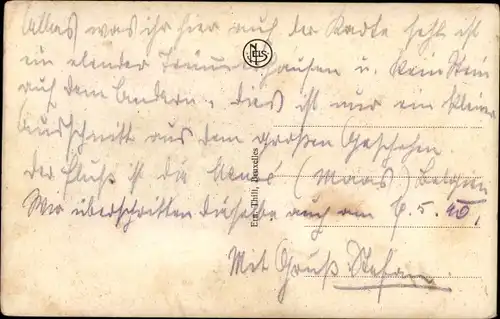 Alles was ihr hier auf der Karte seht ist
ein elender Trümmerhaufen u. kein Stein
auf dem Andern. Dies ist nur ein kleiner
Ausschnitt aus dem großen Geschehen.
Der Fluß ist die (Maas) Belgien
Wir überschritten dieselbe auch am .5.40.
Mit Gruß Stefan.
NELS
Ern. Thill, Bruxelles